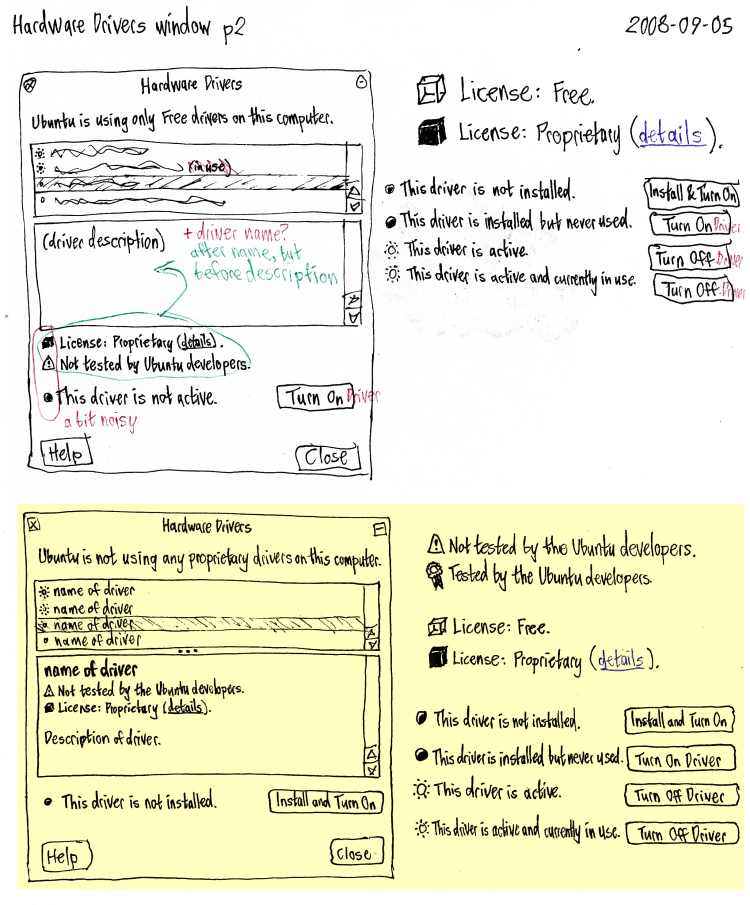 Hardware Drivers window p2
2008-09-05
Hardware Drivers
Ubuntu is using only Free drivers on this computer.
(in use)
(driver description)
+ driver name?
after name, but
before description
License: Proprietary (details).
Not tested by Ubuntu developers.
This driver is not active.
Turn On Driver
a bit noisy
Help
Close
License: Free.
License: Proprietary (details).
This driver is not installed.
Install & Turn On
This driver is installed but never used.
Turn On Driver
This driver is active.
Turn Off Driver
This driver is active and currently in use.
Turn Off Driver
Hardware Drivers
Ubuntu is not using any proprietary drivers on this computer.
name of driver
name of driver
name of driver
name of driver
name of driver
Not tested by the Ubuntu developers.
License: Proprietary (details).
Description of driver.
This driver is not installed.
Install and Turn On
Help
Close
Not tested by the Ubuntu developers.
Tested by the Ubuntu developers.
License: Free.
License: Proprietary (details).
This driver is not installed.
Install and Turn On
This driver is installed but never used.
Turn On Driver
This driver is active.
Turn Off Driver
This driver is active and currently in use.
Turn Off Driver